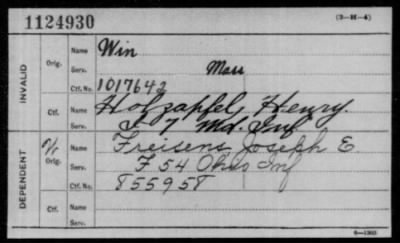 1124930
(3-H-4)
INVALID
Orig.
Name Win
Serv. Mass
Ctf. No. 1017642
Ctf.
Name Holzapfel, Henry.
Serv. I 7 Md. Inf
DEPENDENT
W
Orig.
Name Freisens Joseph E.
Serv. F 54 Ohio Inf
Ctf. No. 855958
Ctf.
Name
Serv.